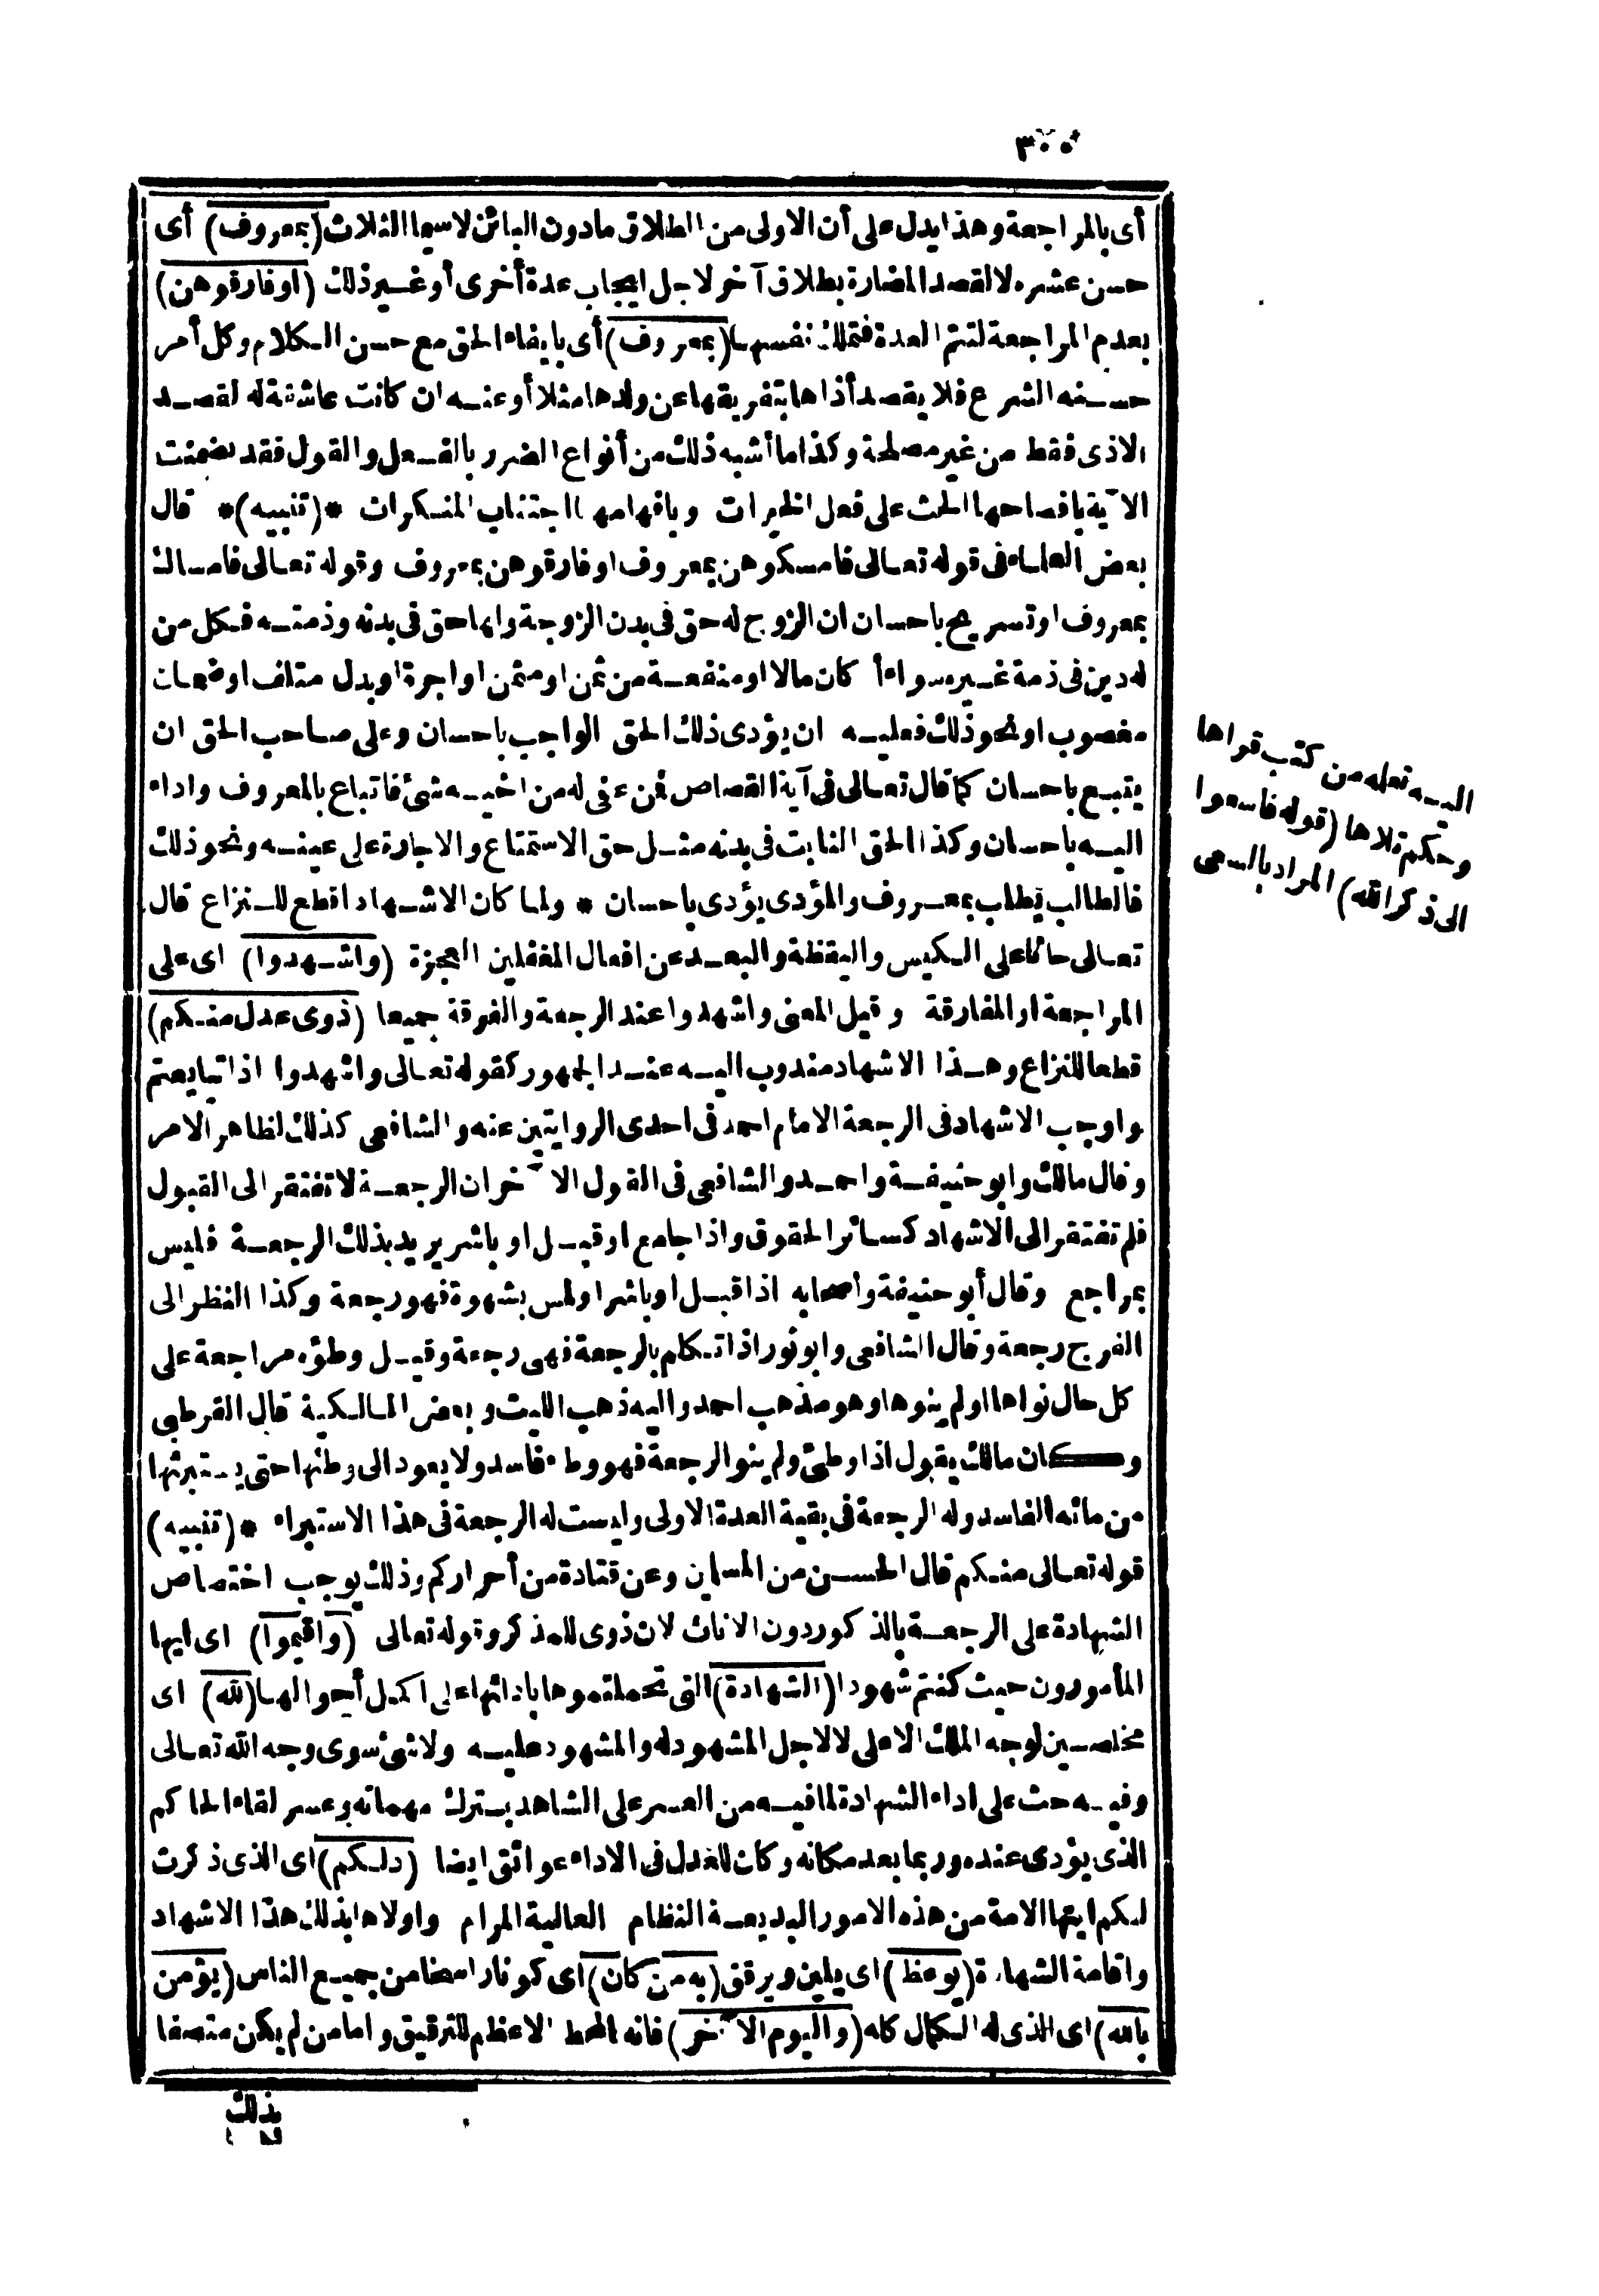 أى بالمراجعة وهذا يدل على أن الاولى من الطلاق ما دون البائن لاسيما الثلاث (بمعروف) أى
حسن عشرة لا لقصد المضارة بطلاق آخر لاجل ايجاب عدة أخرى أو غير ذلك (اوفارقوهن)
بعدم المراجعة لتتم العدة فتملك نفسها (بمعروف) أى بايفاء الحق مع حسن الكلام وكل أمر
حسنه الشرع فلا يقصد أذاها بتفريقها عن ولدها مثلا أو عنه ان كانت عاشقة له لقصد
الاذى فقط من غير مصلحة وكذا ما أشبه ذلك من أنواع الضرر بالفعل والقول فقد تضمنت
الآية بافصاحها الحث على فعل الخيرات وبافهامها اجتناب المنكرات * (تنبيه) * قال
بعض العلماء فى قوله تعالى فامسكوهن بمعروف اوفارقوهن بمعروف وقوله تعالى فامساك
بمعروف اوتسريح باحسان ان الزوج له حق فى بدن الزوجة ولها حق فى بدنه وذمته فكل من
له دين فى ذمة غيره سواء أ كان مالا او منفعة من ثمن او مثمن او اجرة او بدل متلف او ضمان
مغصوب او نحو ذلك فعليه ان يؤدى ذلك الحق الواجب باحسان وعلى صاحب الحق ان
يتبع باحسان كما قال تعالى فى آية القصاص فمن عفى له من اخيه شئ فاتباع بالمعروف واداء
اليه باحسان وكذا الحق الثابت فى بدنه مثل حق الاستمتاع والاجارة على عينه ونحو ذلك
فالطالب يطلب بمعروف والمؤدى يؤدى باحسان * ولما كان الاشهاد اقطع للنزاع قال
تعالى حاثا على الكيس واليقظة والبعد عن افعال المغفلين العجزة (واشهدوا) اى على
المراجعة او المفارقة وقيل المعنى واشهدوا عند الرجعة والفرقة جميعا (ذوى عدل منكم)
قطعا للنزاع وهذا الاشهاد مندوب اليه عند الجمهور كقوله تعالى واشهدوا اذا تبايعتم
واوجب الاشهاد فى الرجعة الامام احمد فى احدى الروايتين عنه والشافعى كذلك لظاهر الامر
وقال مالك وابو حنيفة واحمد والشافعى فى القول الآخر ان الرجعة لا تفتقر الى القبول
فلم تفتقر الى الاشهاد كسائر الحقوق واذا جامع او قبل او باشر يريد بذلك الرجعة فليس
بمراجع وقال أبو حنيفة واصحابه اذا قبل او باشر او لمس بشهوة فهو رجعة وكذا النظر الى
الفرج رجعة وقال الشافعى وابو ثور اذا تكلم بالرجعة فهى رجعة وقيل وطؤه مراجعة على
كل حال نواها او لم ينوها وهو مذهب احمد واليه ذهب الليث وبعض المالكية قال القرطبى
وكان مالك يقول اذا وطئ ولم ينو الرجعة فهو وطء فاسد ولا يعود الى وطئها حتى يستبرئها
من مائه الفاسد وله الرجعة فى بقية العدة الاولى وليست له الرجعة فى هذا الاستبراء * (تنبيه)
قوله تعالى منكم قال الحسن من المسلمين وعن قتادة من أحراركم وذلك يوجب اختصاص
الشهادة على الرجعة بالذكور دون الاناث لان ذوى للمذكر وقوله تعالى (واقيموا) اى ايها
المأمورون حيث كنتم شهودا (الشهادة) التى تحملتموها بادائها على اكمل أحوالها (لله) اى
مخلصين لوجه الملك الاعلى لا لاجل المشهود له والمشهود عليه ولا شئ سوى وجه الله تعالى
وفيه حث على اداء الشهادة لما فيه من العسر على الشاهد بترك مهماته وعسر لقاء الحاكم
الذى يؤدى عنده وربما بعد مكانه وكان للعدل فى الاداء عوائق ايضا (ذلكم) اى الذى ذكرت
لكم ايتها الامة من هذه الامور البديعة النظام العالية المرام واولاها بذلك هذا الاشهاد
واقامة الشهادة (يوعظ) اى يلين ويرقق (به من كان) اى كونا راسخا من جميع الناس (يؤمن
بالله) اى الذى له الكمال كله (واليوم الآخر) فانه المحط الاعظم للترقيق واما من لم يكن متصفا
بذلك
اليه نعله من كتب قراها
وحكم تلاها (قوله فاسعوا
الى ذكر الله) المراد بالسعى